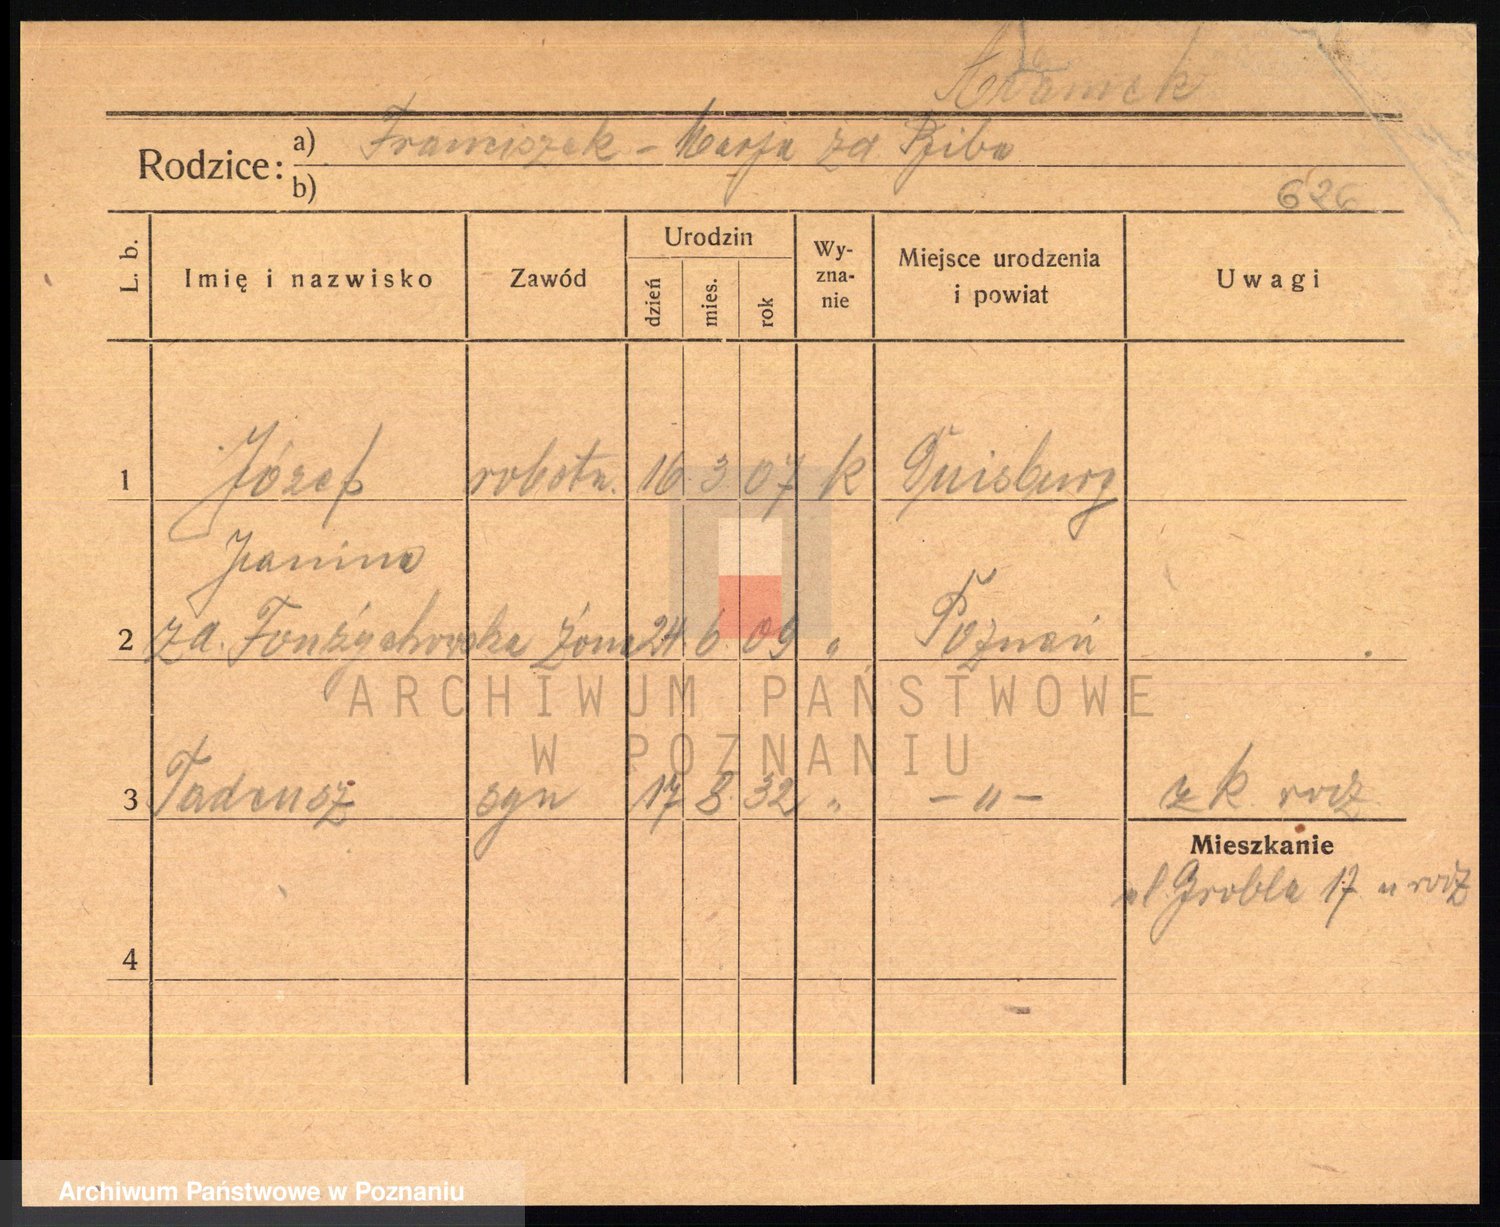 Rodzice: a) Franciszek - Marja za
b)
626
L. b. Imię i nazwisko Zawód Urodzin dzień mies. rok Wy-zna-nie Miejsce urodzenia i powiat Uwagi
1 Józef robotn. 16 3 07 k Duisburg
Janina
2 za. żona 24. 6. 09 " Poznań
ARCHIWUM PAŃSTWOWE
W POZNANIU
3 Tadeusz syn 17 8. 32 " - " - z k. rodz.
Mieszkanie
ul. Grobla 17 u rodz
4
Archiwum Państwowe w Poznaniu